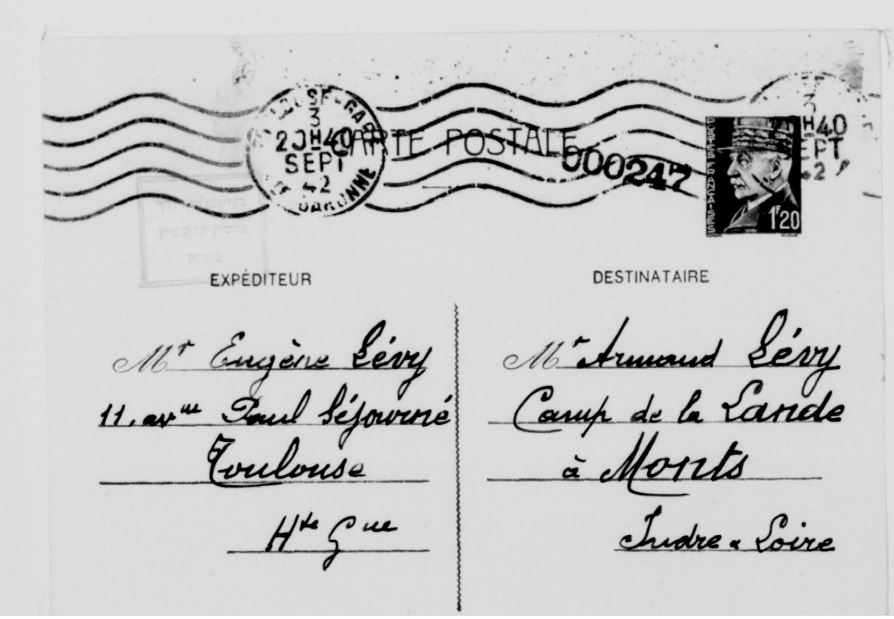 TOULOUSE-GARE
3
20H40
SEPT
42
Hte GARONNE
CARTE POSTALE
000247
POSTES FRANÇAISES
1F20
H40
EPT
42
EXPÉDITEUR
Mr Eugène Lévy
11. avnue Paul Séjourné
Toulouse
Hte Gne
DESTINATAIRE
Mr Armand Lévy
Camp de la Lande
à Monts
Indre & Loire